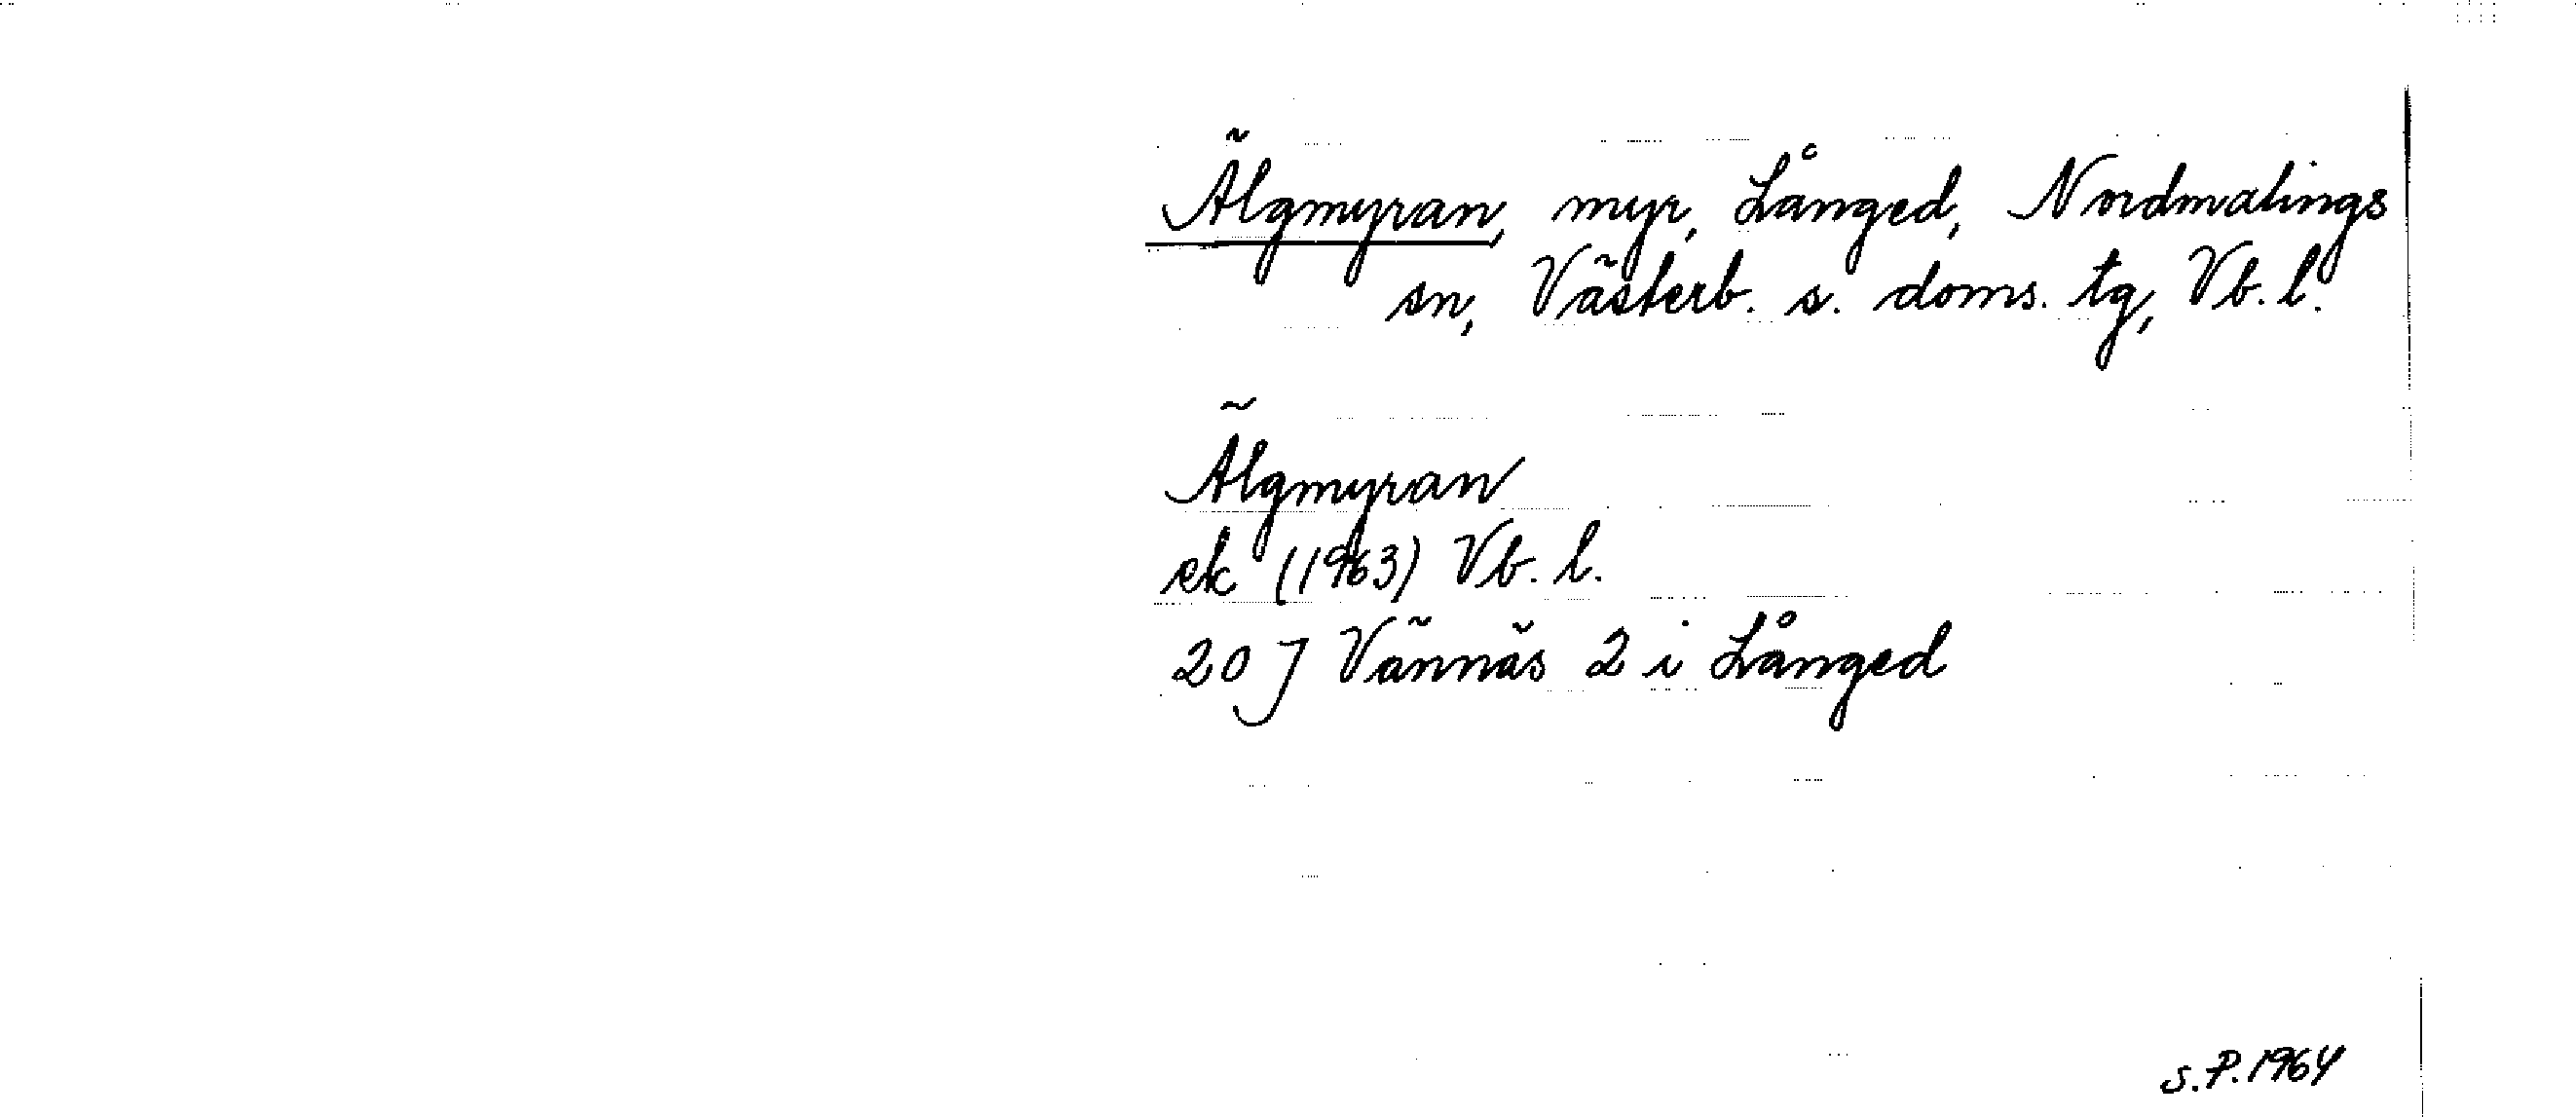 Älgmyran, myr, Långed, Nordmalings
sn, Västerb. s. doms. tg, Vb. l.
Älgmyran
ek (1963) Vb. l.
20 J Vännäs 2 i Långed
S.P. 1964